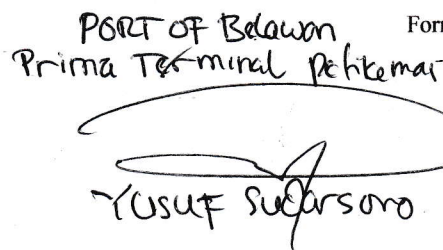 PORT OF Belawan
Form
Prima Terminal Petikemas
YUSUF Sudarsono